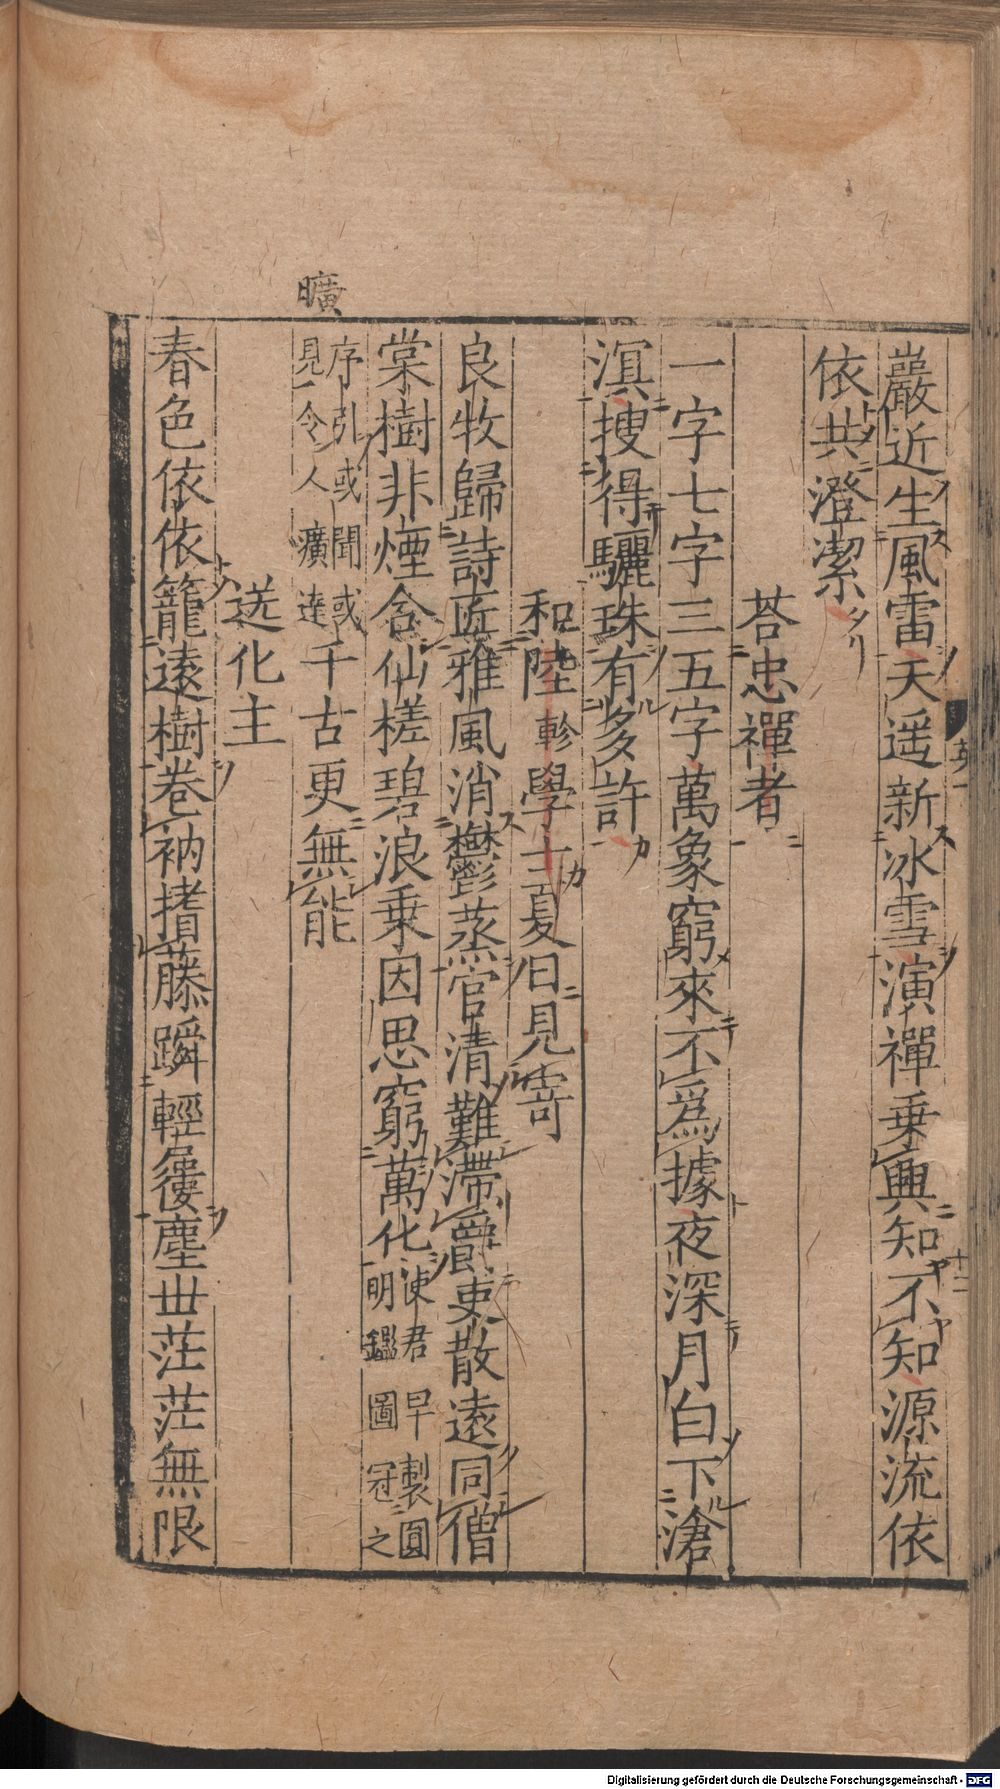 巖近生風雷天遥新冰雪演禪乗興知不知源流依
依共澄潔
荅忠禪者
一字七字三五字萬象窮來不爲據夜深月白下滄
溟搜得驪珠有多許
和陸軫學士夏日見寄
良牧歸詩匠雅風消鬱蒸官清難滯爵吏散遠同僧
棠樹非煙含仙槎碧浪乗因思窮萬化使君早製圓明鑑圖冠之
序引或聞或見令人癀達千古更無能
曠
送化主
春色依依籠遠樹卷衲揩藤躋輕屨塵丗茫茫無限
十二
Digitalisierung gefördert durch die Deutsche Forschungsgemeinschaft - DFG